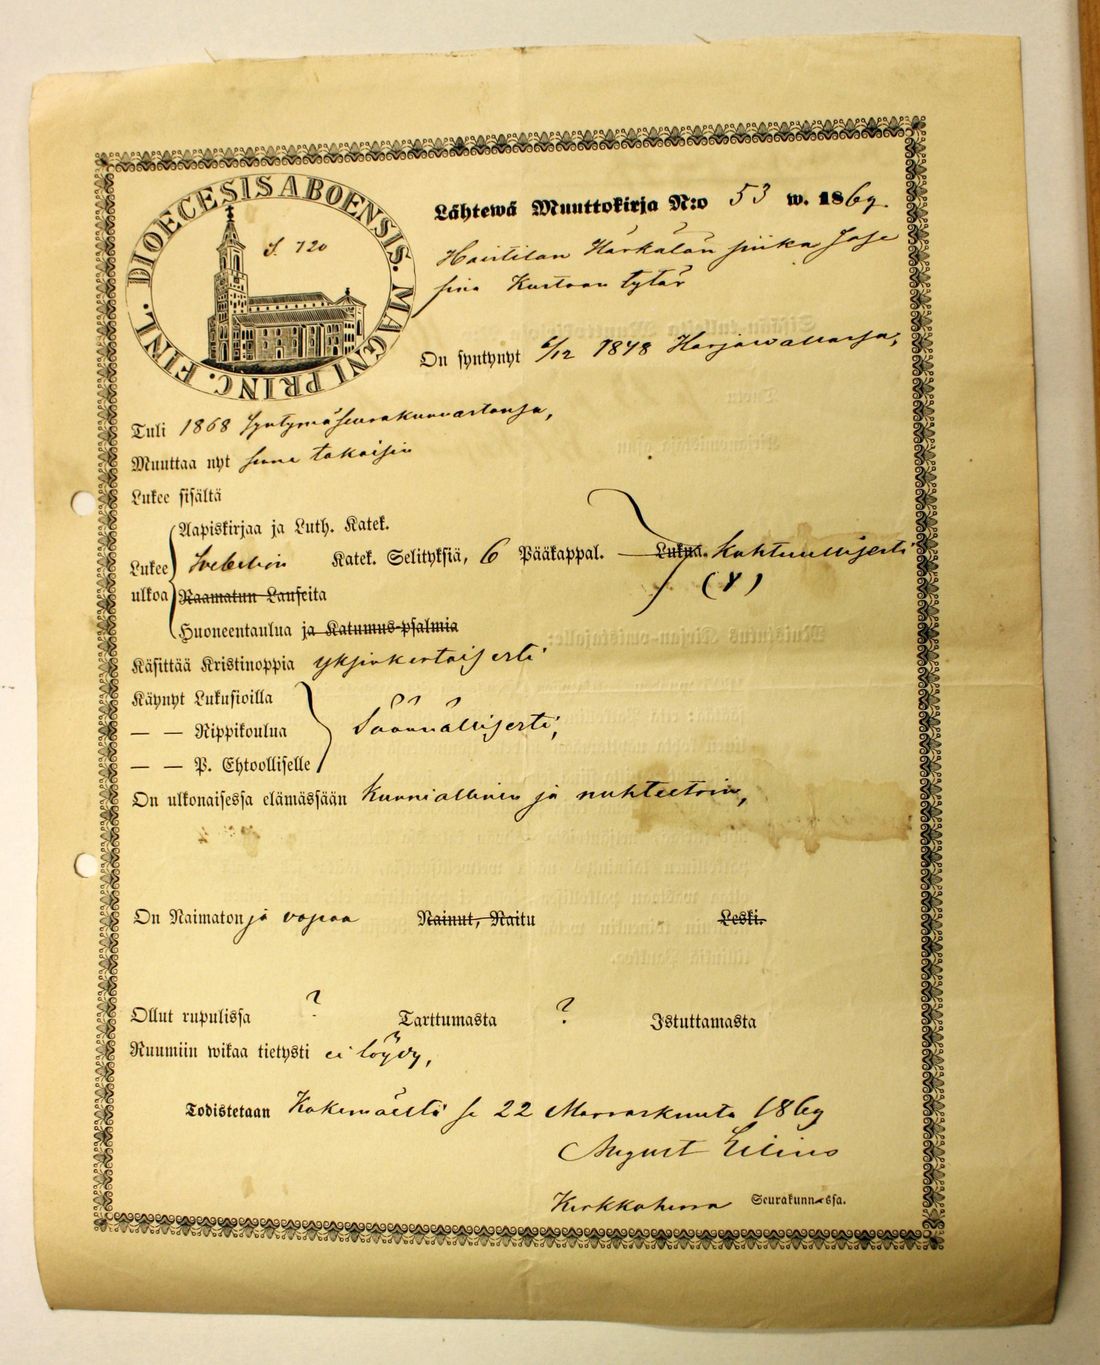 DIOECESIS ABOENSIS. MAGNI PRINC. FINL.
S. 720
Lähtewä Muuttokirja N:o 53 w. 1869.
Haistilan Härkälän piika Jose
fina Kustaan tytär
On syntynyt 6/12 1848 Harjavallassa,
Tuli 1868 Syntymäseurakunnastansa,
Muuttaa nyt sinne takaisin
Lukee sisältä
Aapiskirjaa ja Luth. Katek.
Lukee Svebelion Katek. Selityksiä, 6 Pääkappal. Lukua. Kohtuullisesti
ulkoa Raamatun Lauseita (Y)
Huoneentaulua ja Katumus-psalmia
Käsittää Kristinoppia yksinkertaisesti
Käynyt Lukusioilla
— — Rippikoulua Säännöllisesti,
— — P. Ehtoolliselle
On ulkonaisessa elämässään Kunniallinen ja nuhteetoin,
On Naimaton ja vapaa Nainut, Naitu Leski.
Ollut rupulissa ? Tarttumasta ? Istuttamasta
Ruumiin wikaa tietysti ei löydy,
Todistetaan Kokemäeltä se 22 Marraskuuta 1869
August
Kirkkoherra Seurakunnassa.